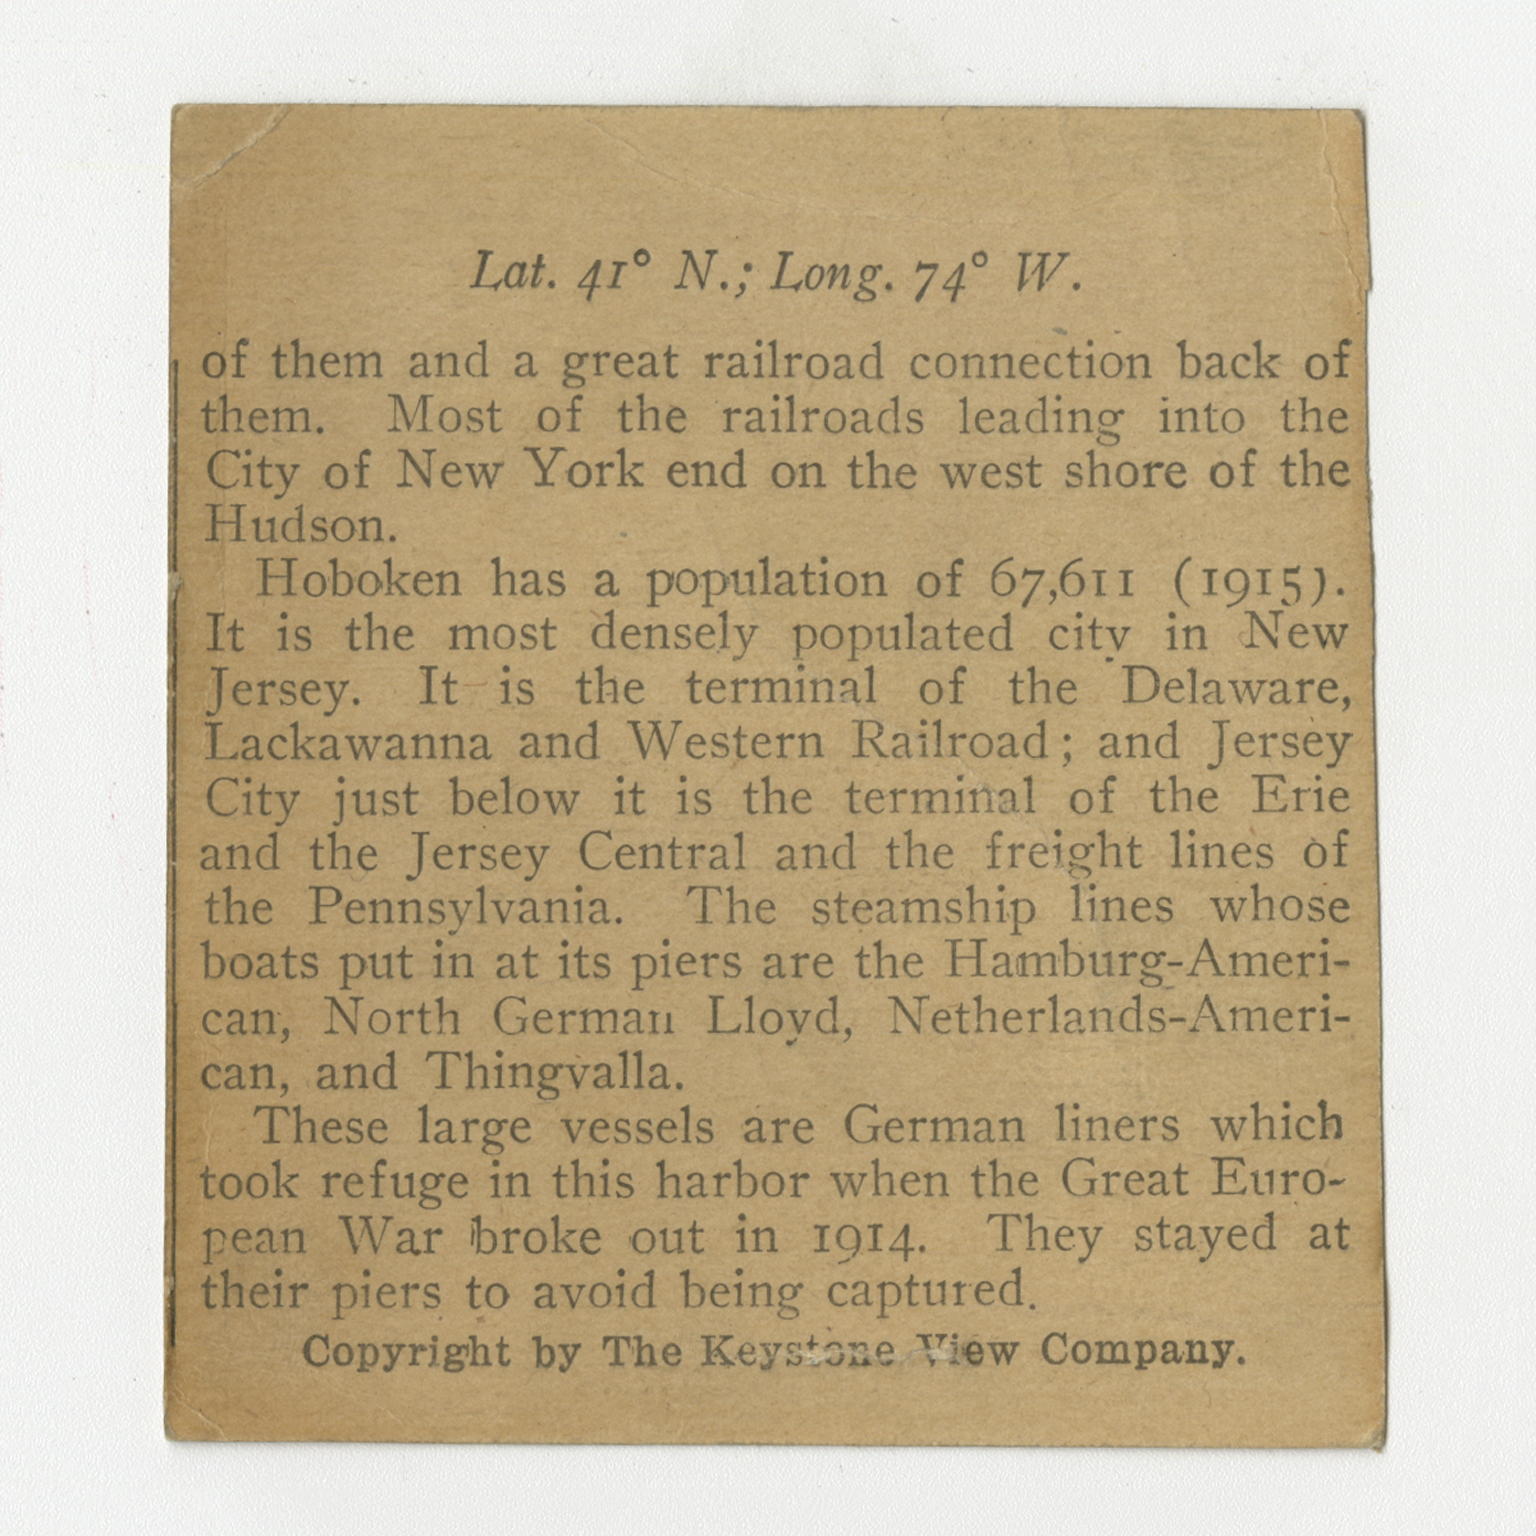 Lat. 41° N.; Long. 74° W.
of them and a great railroad connection back of
them. Most of the railroads leading into the
City of New York end on the west shore of the
Hudson.
Hoboken has a population of 67,611 (1915).
It is the most densely populated city in New
Jersey. It is the terminal of the Delaware,
Lackawanna and Western Railroad; and Jersey
City just below it is the terminal of the Erie
and the Jersey Central and the freight lines of
the Pennsylvania. The steamship lines whose
boats put in at its piers are the Hamburg-Ameri-
can, North German Lloyd, Netherlands-Ameri-
can, and Thingvalla.
These large vessels are German liners which
took refuge in this harbor when the Great Euro-
pean War broke out in 1914. They stayed at
their piers to avoid being captured.
Copyright by The Keystone View Company.